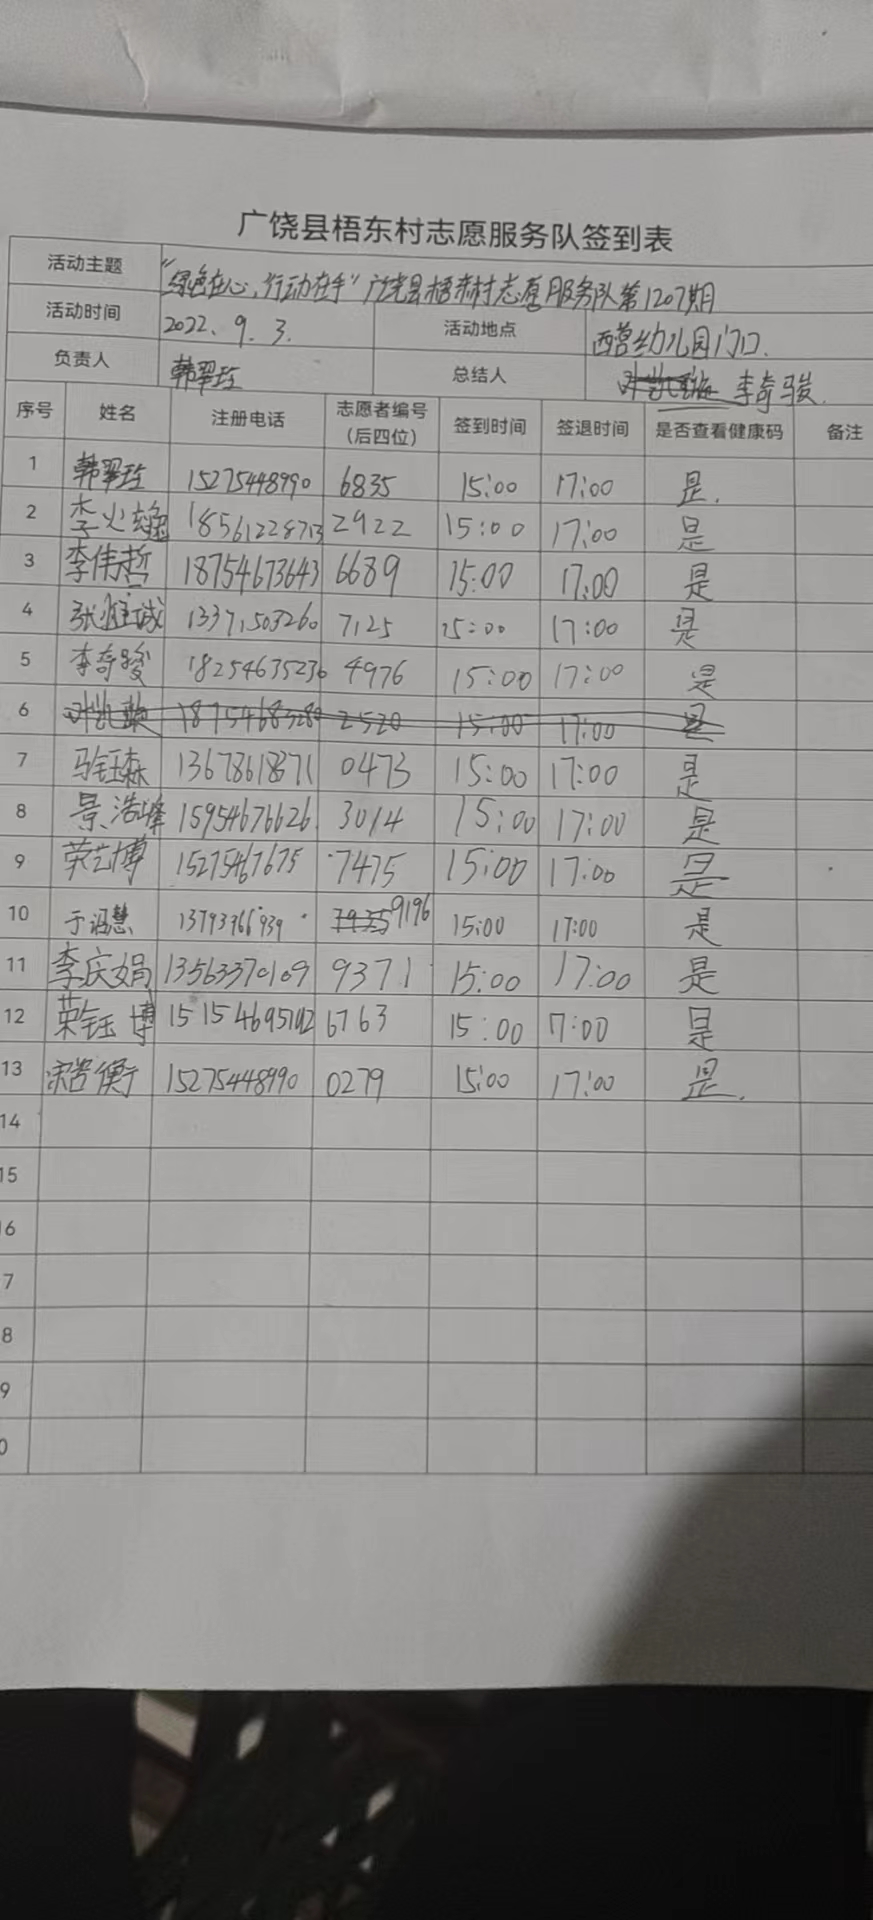 广饶县梧东村志愿服务队签到表
活动主题 "绿色在心,行动在手"广饶县梧东村志愿服务队第1207期
活动时间 2022.9.3. 活动地点 西营幼儿园门口.
负责人 韩翠 总结人 李奇骏.
序号 姓名 注册电话 志愿者编号(后四位) 签到时间 签退时间 是否查看健康码 备注
1 韩翠 15275448990 6835 15:00 17:00 是.
2 李 18561228713 2922 15:00 17:00 是
3 李伟哲 18754673643 6689 15:00 17:00 是
4 张 诚 13371503260 7125 15:00 17:00 是
5 李奇骏 18254635236 4976 15:00 17:00 是
6 2520 15:00 17:00 是
7 马钰森 13678618371 0473 15:00 17:00 是
8 景浩峰 15954676626 3014 15:00 17:00 是
9 荣艺博 15275467675 7475 15:00 17:00 是
10 于 慧 13793766939 9196 15:00 17:00 是
11 李庆娟 13563370109 9371 15:00 17:00 是
12 荣钰博 6763 15:00 17:00 是
13 衡 15275448990 0279 15:00 17:00 是.
14
15
16
7
8
9
0